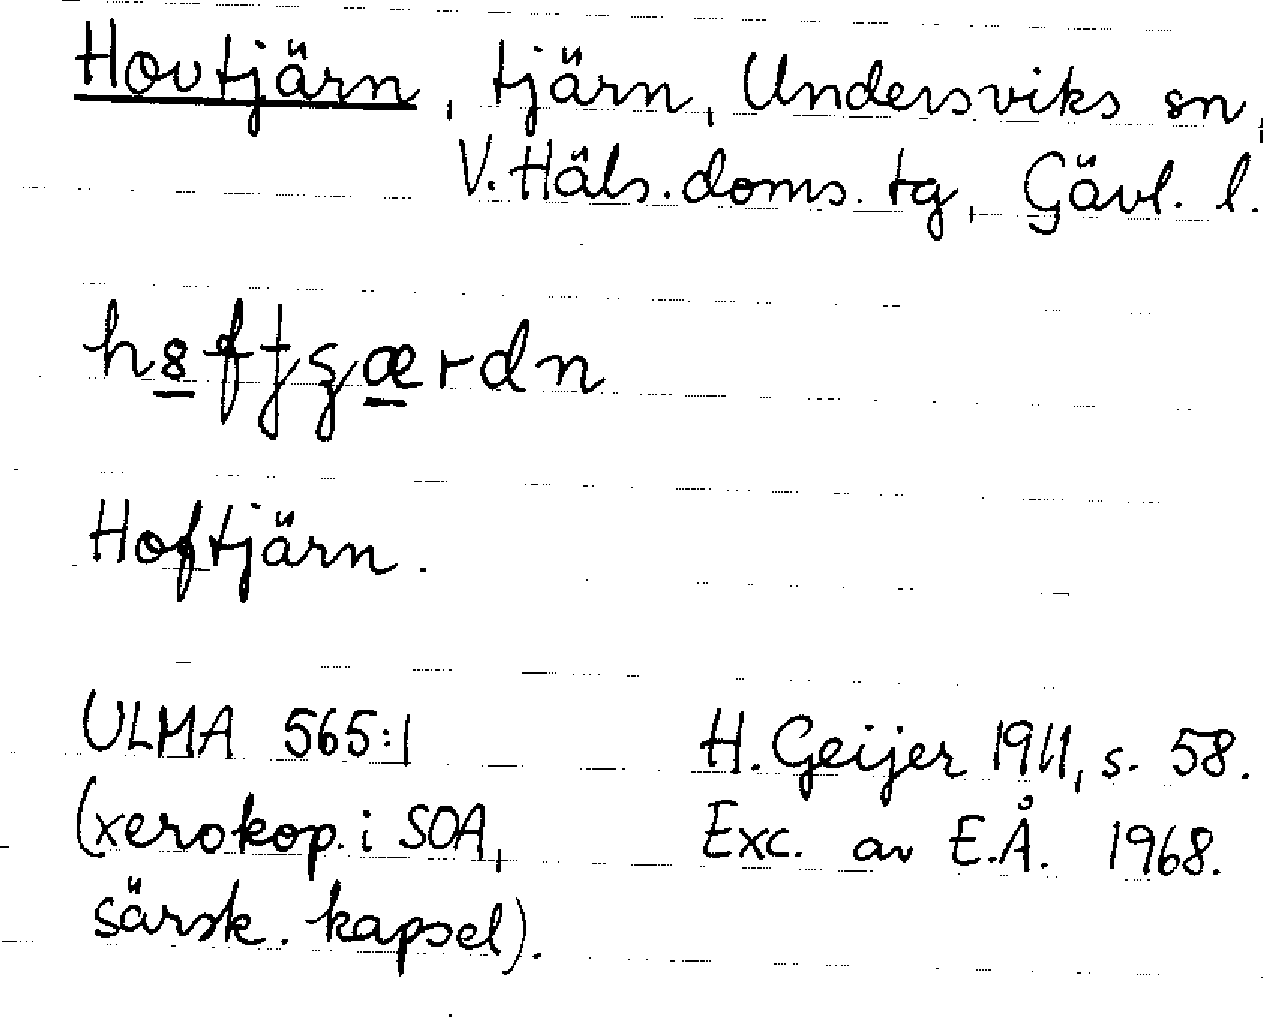 Hovtjärn, tjärn, Undersviks sn,
V. Häls. doms. tg, Gävl. l.
Hoftjärn.
ULMA 565:1 H. Geijer 1911, s. 58.
(xerokop. i SOA, Exc. av E.Å. 1968.
särsk. kapsel).